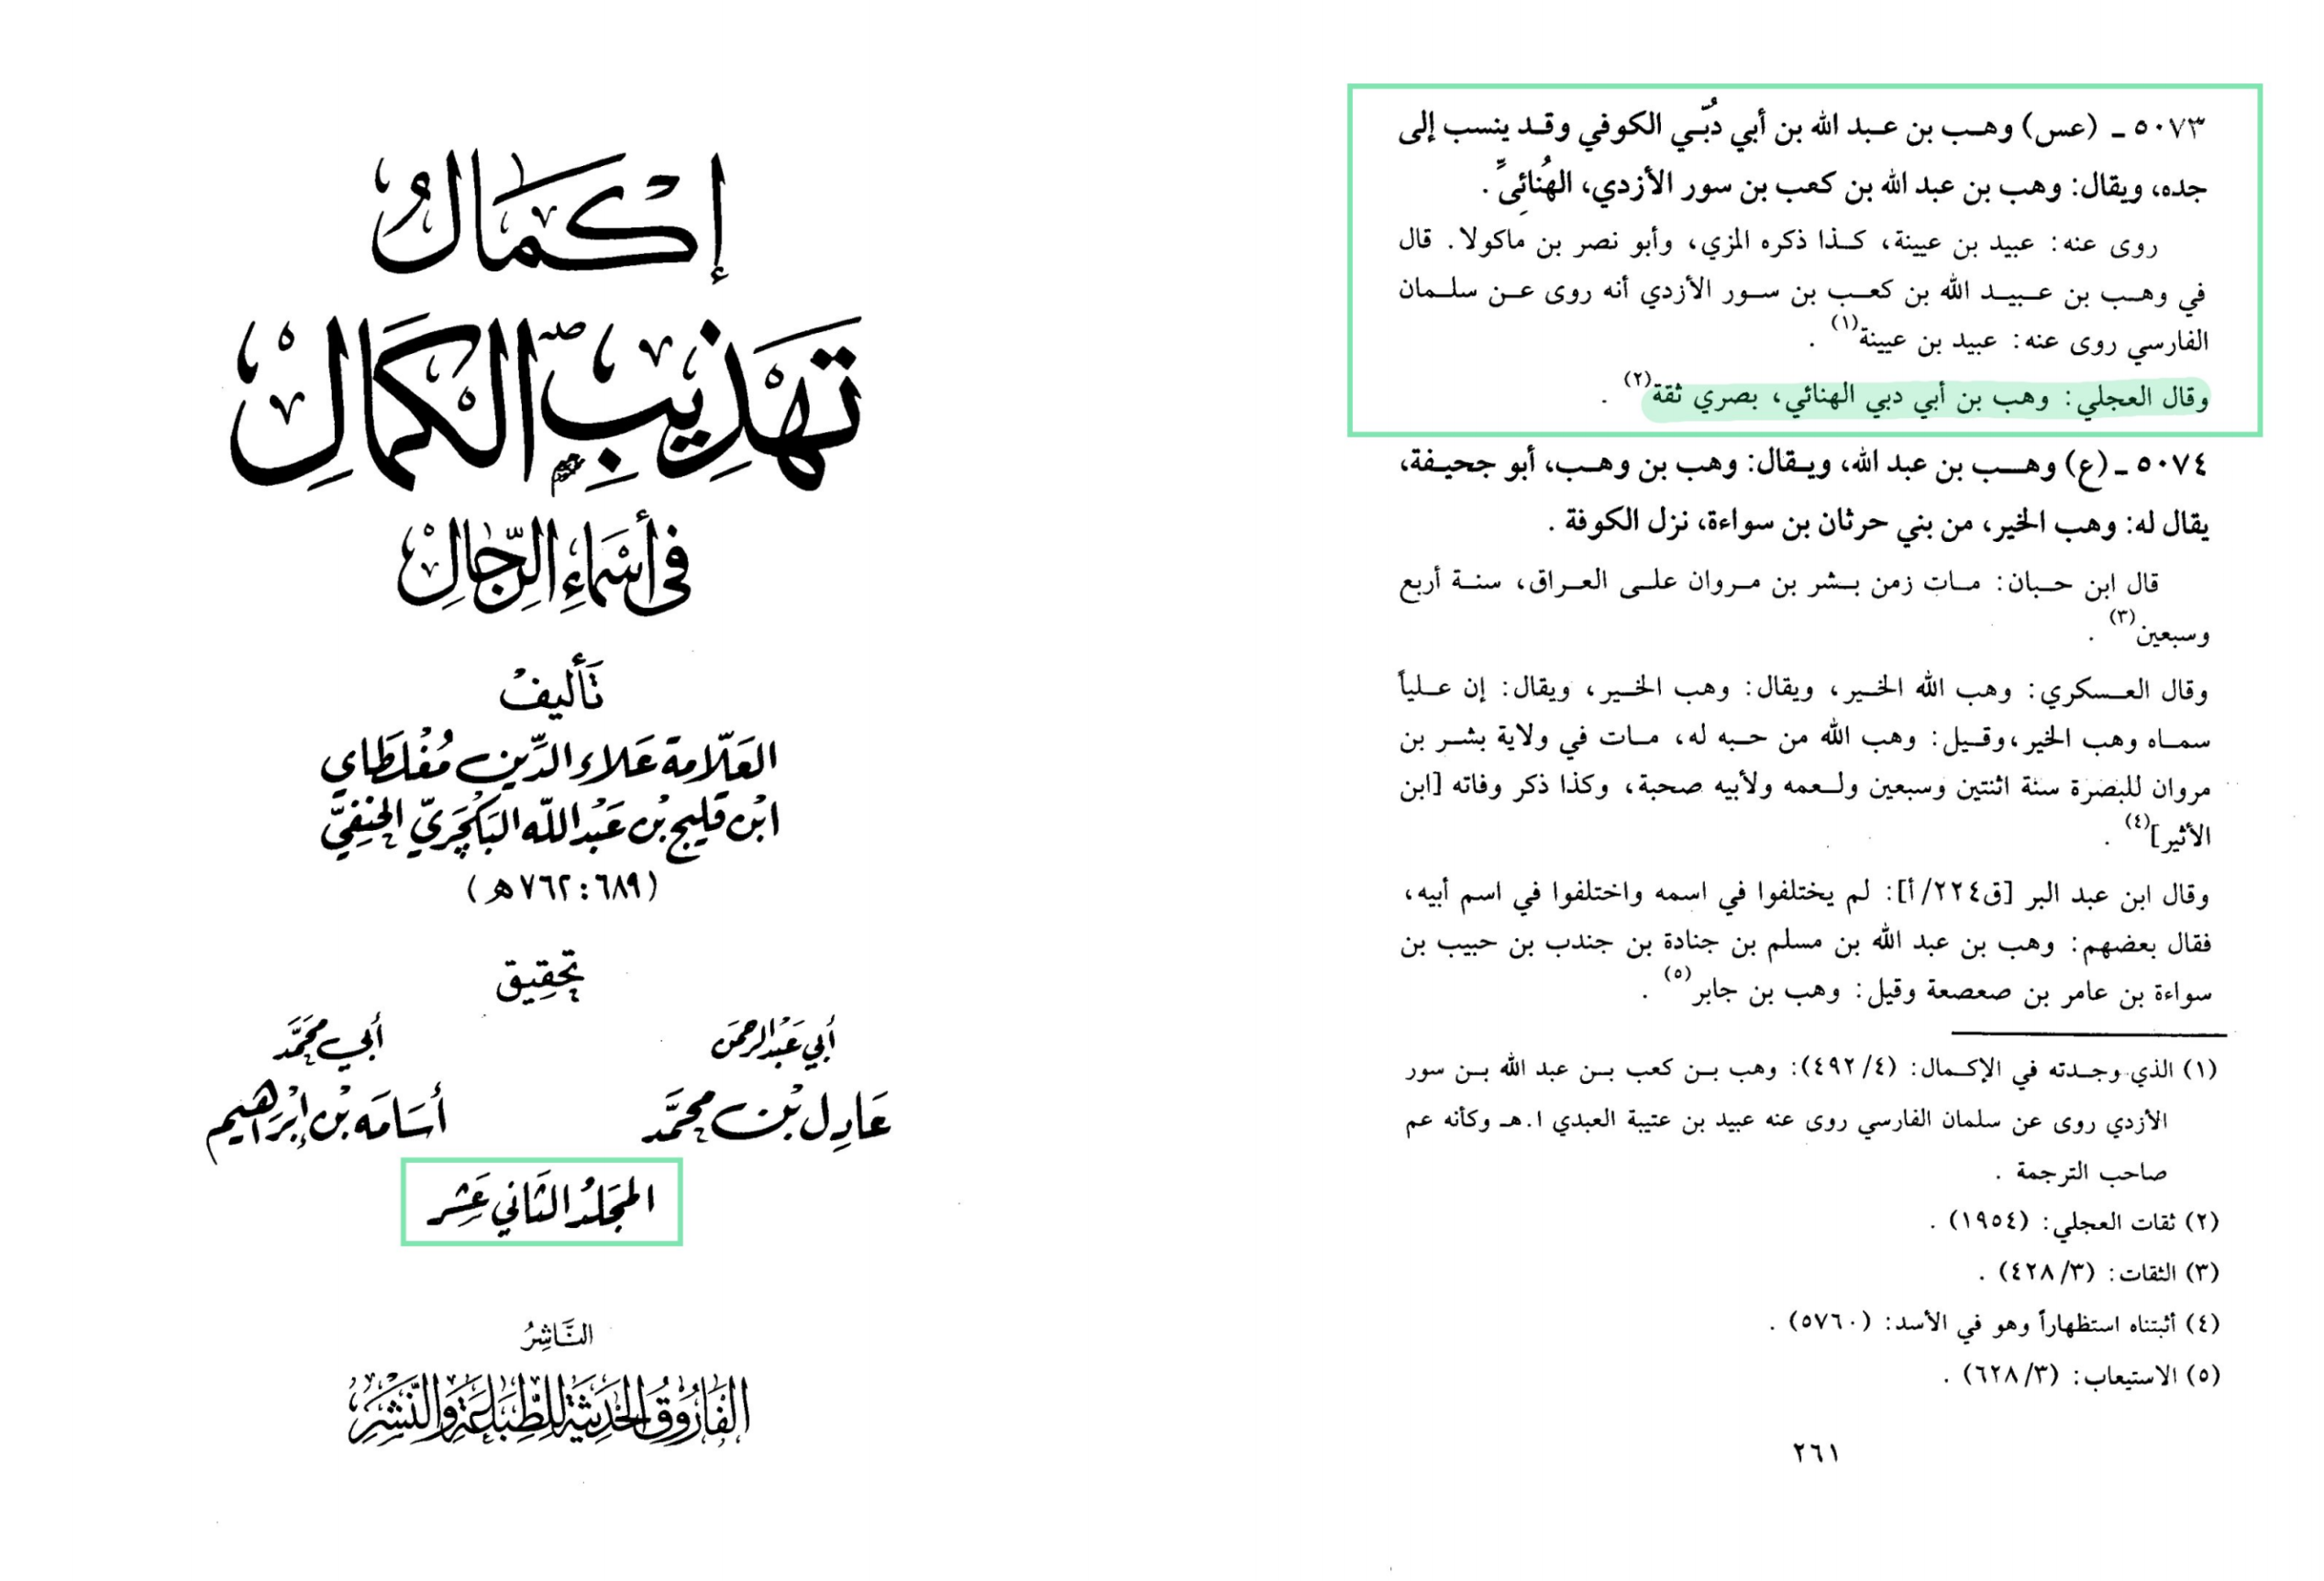 إكمال
تهذيب الكمال
في أسماء الرجال
تأليف
العلّامة علاء الدّين مُغْلَطاي
ابن قليج بن عبد الله البَكْجَريّ الحنفيّ
(٦٨٩:٧٦٢ﻫ)
تحقيق
أبي عبد الرحمن
أبي محمّد
عادل بن محمّد
أسامة بن إبراهيم
المجلد الثاني عشر
النّاشرُ
الفاروق الحديثة للطباعة والنشر
٥٠٧٣ ـ (عس) وهب بن عبد الله بن أبي دُبّي الكوفي وقد ينسب إلى
جده، ويقال: وهب بن عبد الله بن كعب بن سور الأزدي، الهُنائِيِّ .
روى عنه: عبيد بن عيينة، كذا ذكره المزي، وأبو نصر بن ماكولا. قال
في وهب بن عبيد الله بن كعب بن سور الأزدي أنه روى عن سلمان
الفارسي روى عنه: عبيد بن عيينة(١) .
وقال العجلي: وهب بن أبي دبي الهنائي، بصري ثقة(٢) .
٥٠٧٤ ـ (ع) وهب بن عبد الله، ويقال: وهب بن وهب، أبو جحيفة،
يقال له: وهب الخير، من بني حرثان بن سواءة، نزل الكوفة .
قال ابن حبان: مات زمن بشر بن مروان على العراق، سنة أربع
وسبعين(٣) .
وقال العسكري: وهب الله الخير، ويقال: وهب الخير، ويقال: إن علياً
سماه وهب الخير، وقيل: وهب الله من حبه له، مات في ولاية بشر بن
مروان للبصرة سنة اثنتين وسبعين ولعمه ولأبيه صحبة، وكذا ذكر وفاته [ابن
الأثير](٤) .
وقال ابن عبد البر [ق٢٢٤/أ]: لم يختلفوا في اسمه واختلفوا في اسم أبيه،
فقال بعضهم: وهب بن عبد الله بن مسلم بن جنادة بن جندب بن حبيب بن
سواءة بن عامر بن صعصعة وقيل: وهب بن جابر(٥) .
(١) الذي وجدته في الإكمال: (٤/٤٩٢): وهب بن كعب بن عبد الله بن سور
الأزدي روى عن سلمان الفارسي روى عنه عبيد بن عتيبة العبدي ا.هـ وكأنه عم
صاحب الترجمة .
(٢) ثقات العجلي: (١٩٥٤) .
(٣) الثقات: (٣/٤٢٨) .
(٤) أثبتناه استظهاراً وهو في الأسد: (٥٧٦٠) .
(٥) الاستيعاب: (٣/٦٢٨) .
٢٦١